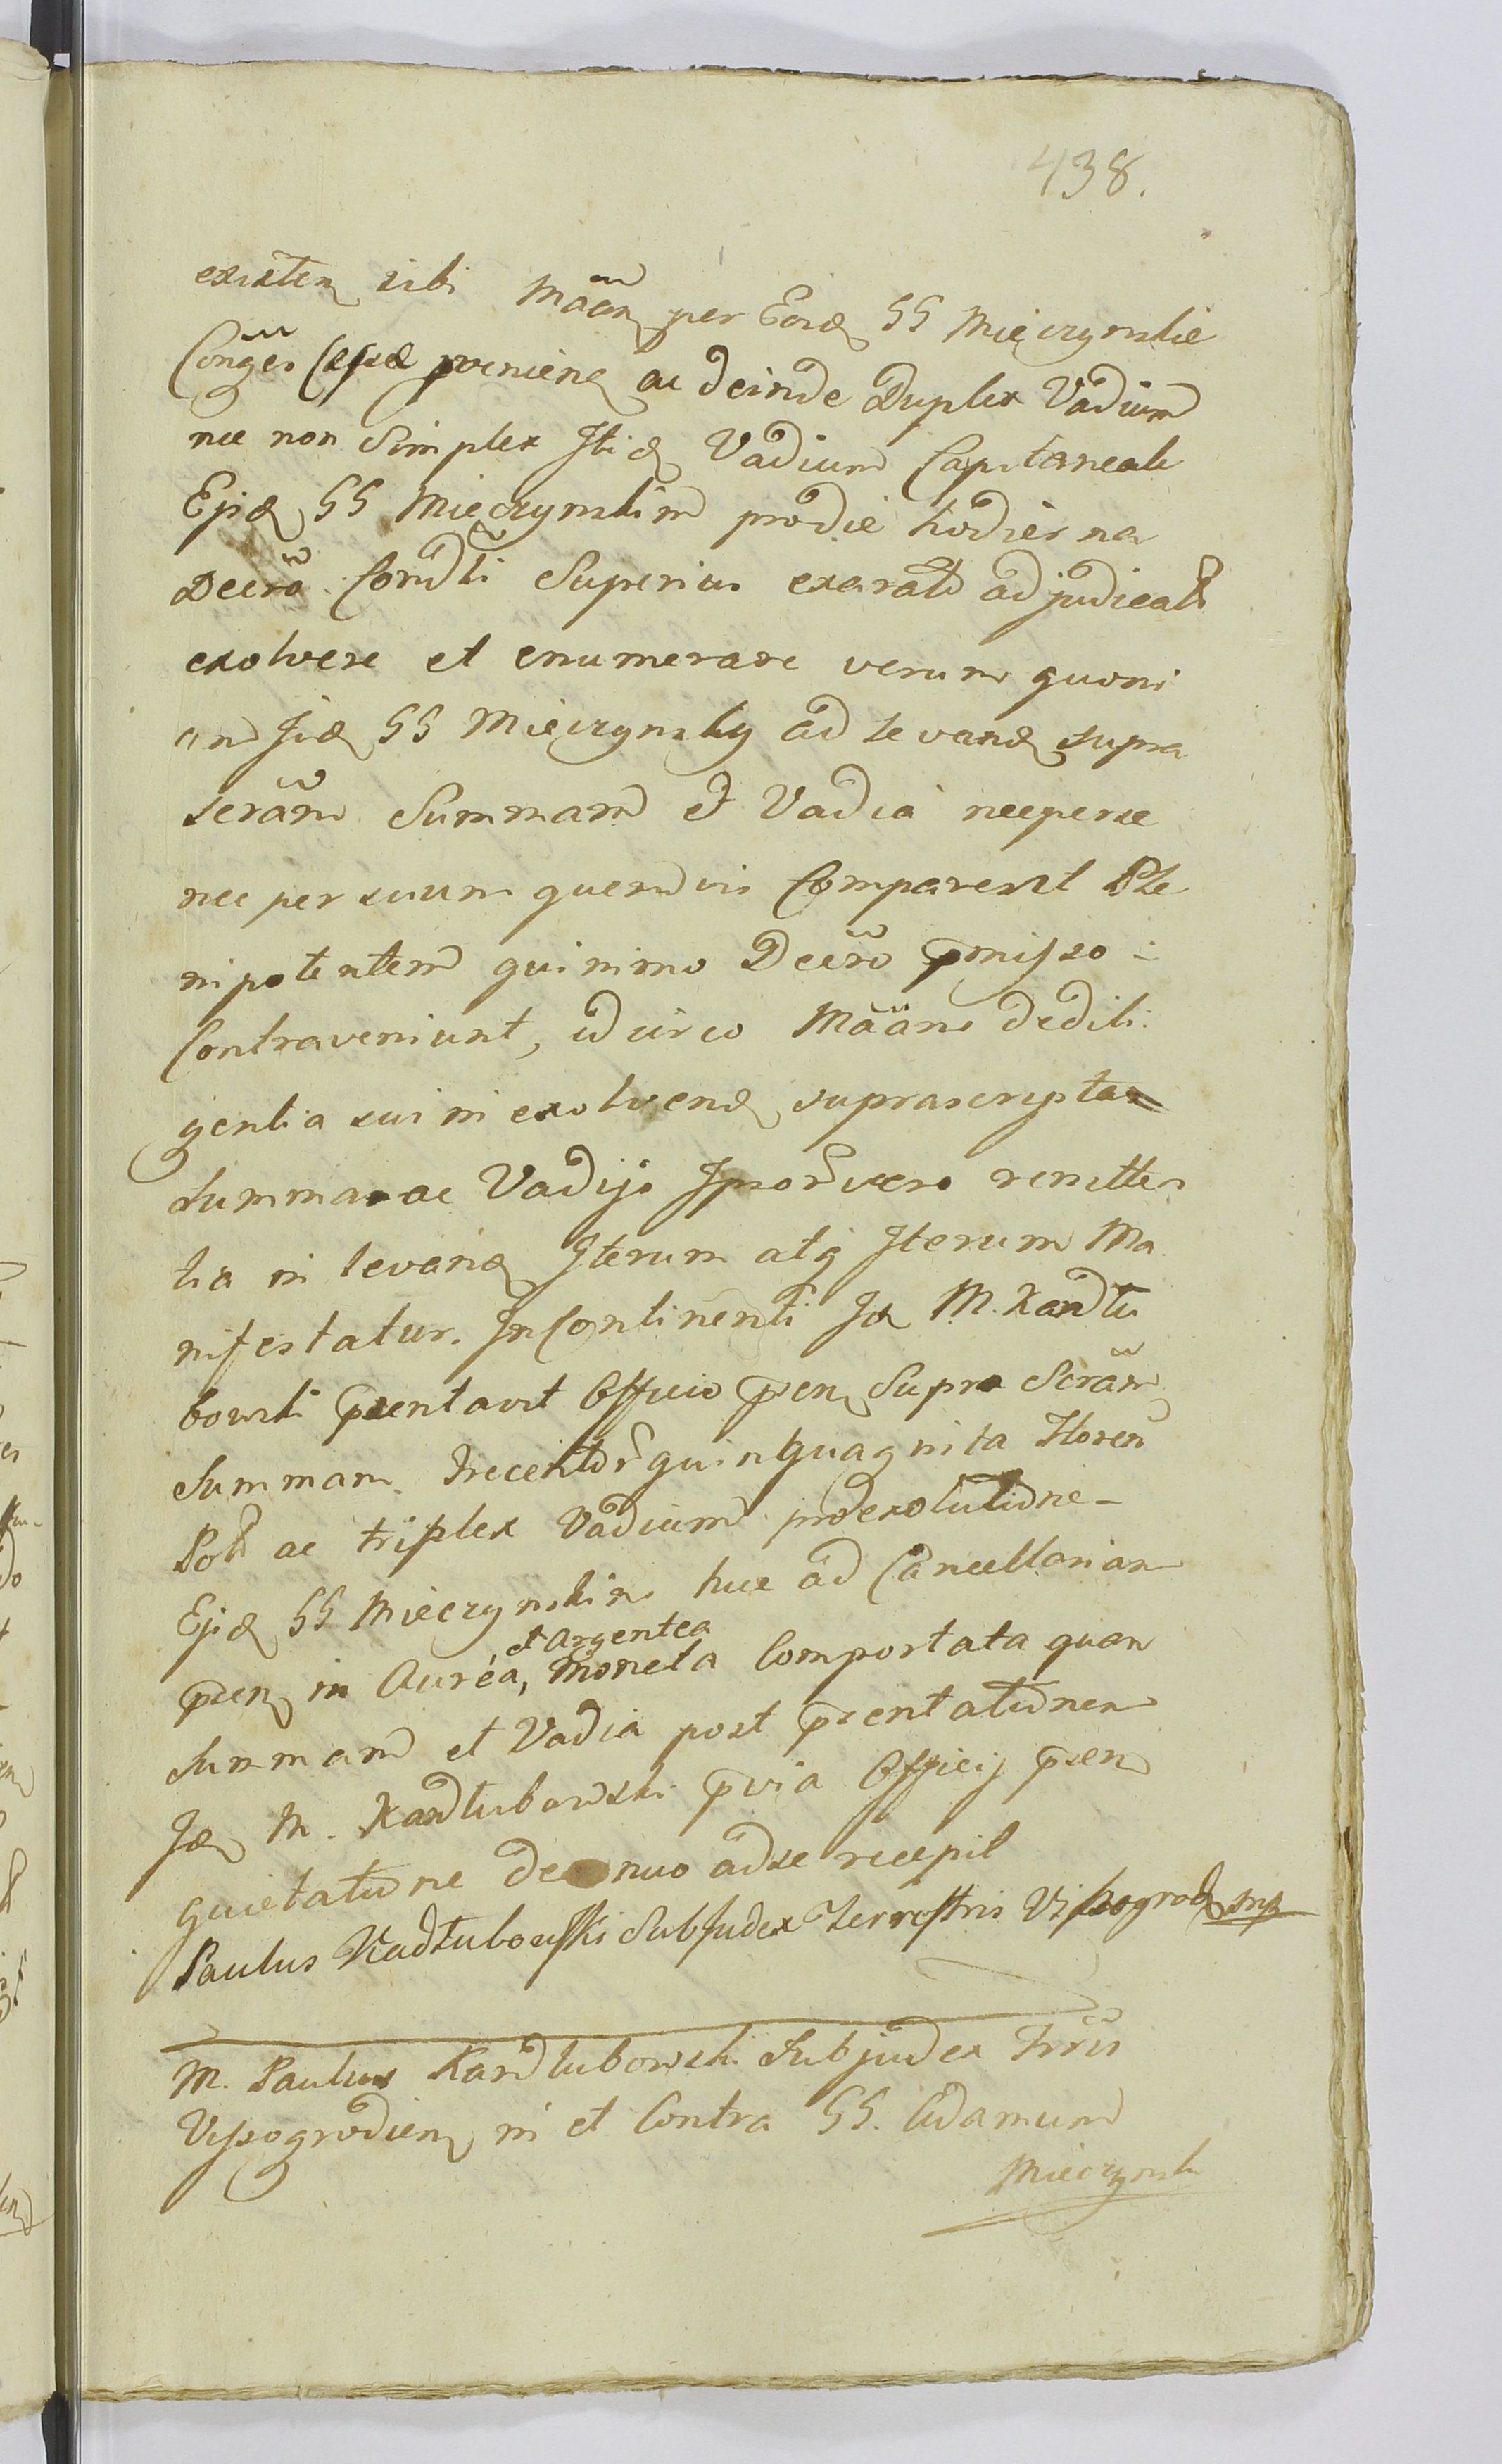 438.
existen sibi Mãan per Eosd GG Mieczynskie
Conges veniens ac deinde Duplex Vadium
nec non Simplex Itid Vadium Capitaneale
Ejsd GG Mieczynskim prodie hodierna
Decrõ Condti Superius exarato adjudicata
exolvere et enumerare verum quoni
am Iid GG Mieczynscy ad levand supra
scrãm Summam et Vadia nec per se
nec per suum quemvis Comparent Ple
nipotentem quinimo Decrõ pmisso
Contraveniunt, idcirco Mããns de dili
gentia sui in exolvend suprascripta
Summa ac Vadijs Ipsor vero renitten
tia in levand Iterum atq Iterum Ma
nifestatur. In Continenti Id M. Kandłu
bowski psentavit Officio psen Supra Scrãm
Summam Trecentor quinquaginta Floren
Pol ac triplex Vadium pro exolutione
Ejsd GG Mieczynskim huc ad Cancellariam
psen in Aurea, et Argentea Moneta Comportata quam
Summam et Vadia post psentationem
Id M. Kandłubowski pvia Officij psen
quietatione denuo ad se recepit
Paulus Kadłubowski SubJudex Terrestris Vissogrod mp
M. Paulus Kandłubowski Subjudex Trris
Vyssogrodien in et Contra GG. Adamum
Mieczynski